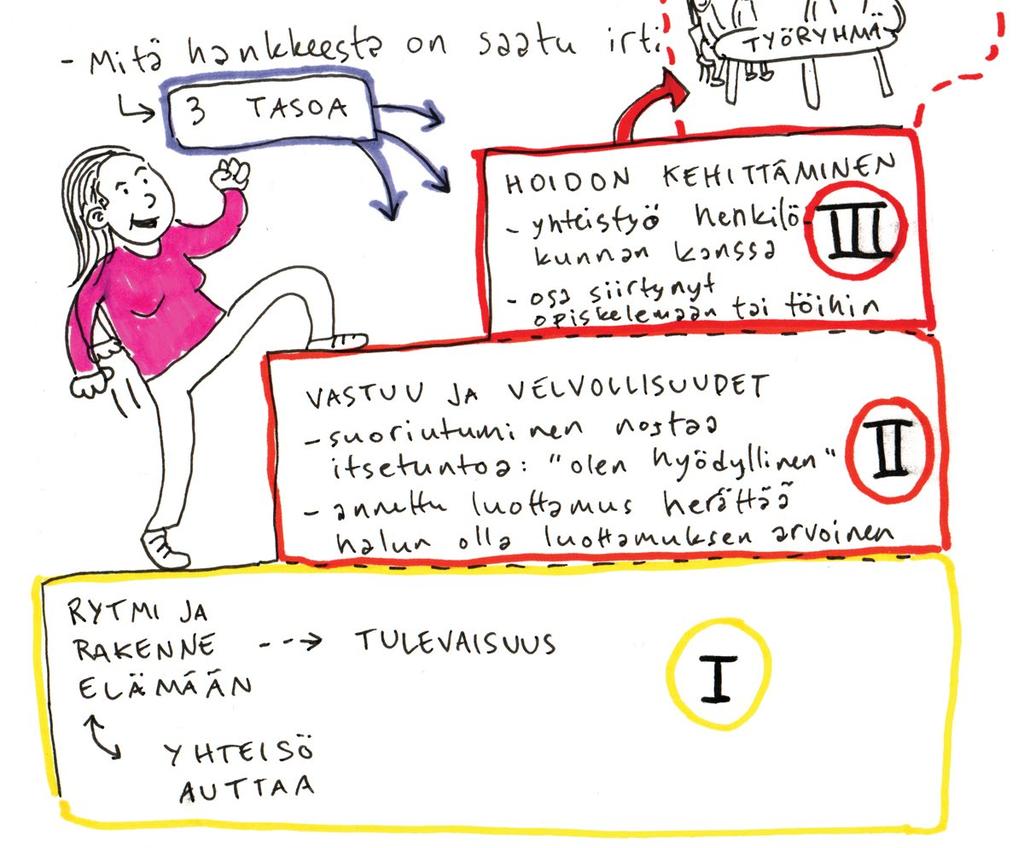 - Mitä hankkeesta on saatu irti
TYÖRYHMÄ
3 TASOA
HOIDON KEHITTÄMINEN
- yhteistyö henkilö-
kunnan kanssa
- osa siirtynyt
opiskelemaan tai töihin
III
VASTUU JA VELVOLLISUUDET
- suoriutuminen nostaa
itsetuntoa: "olen hyödyllinen"
- annettu luottamus herättää
halun olla luottamuksen arvoinen
II
RYTMI JA
RAKENNE --→ TULEVAISUUS
ELÄMÄÄN
I
YHTEISÖ
AUTTAA